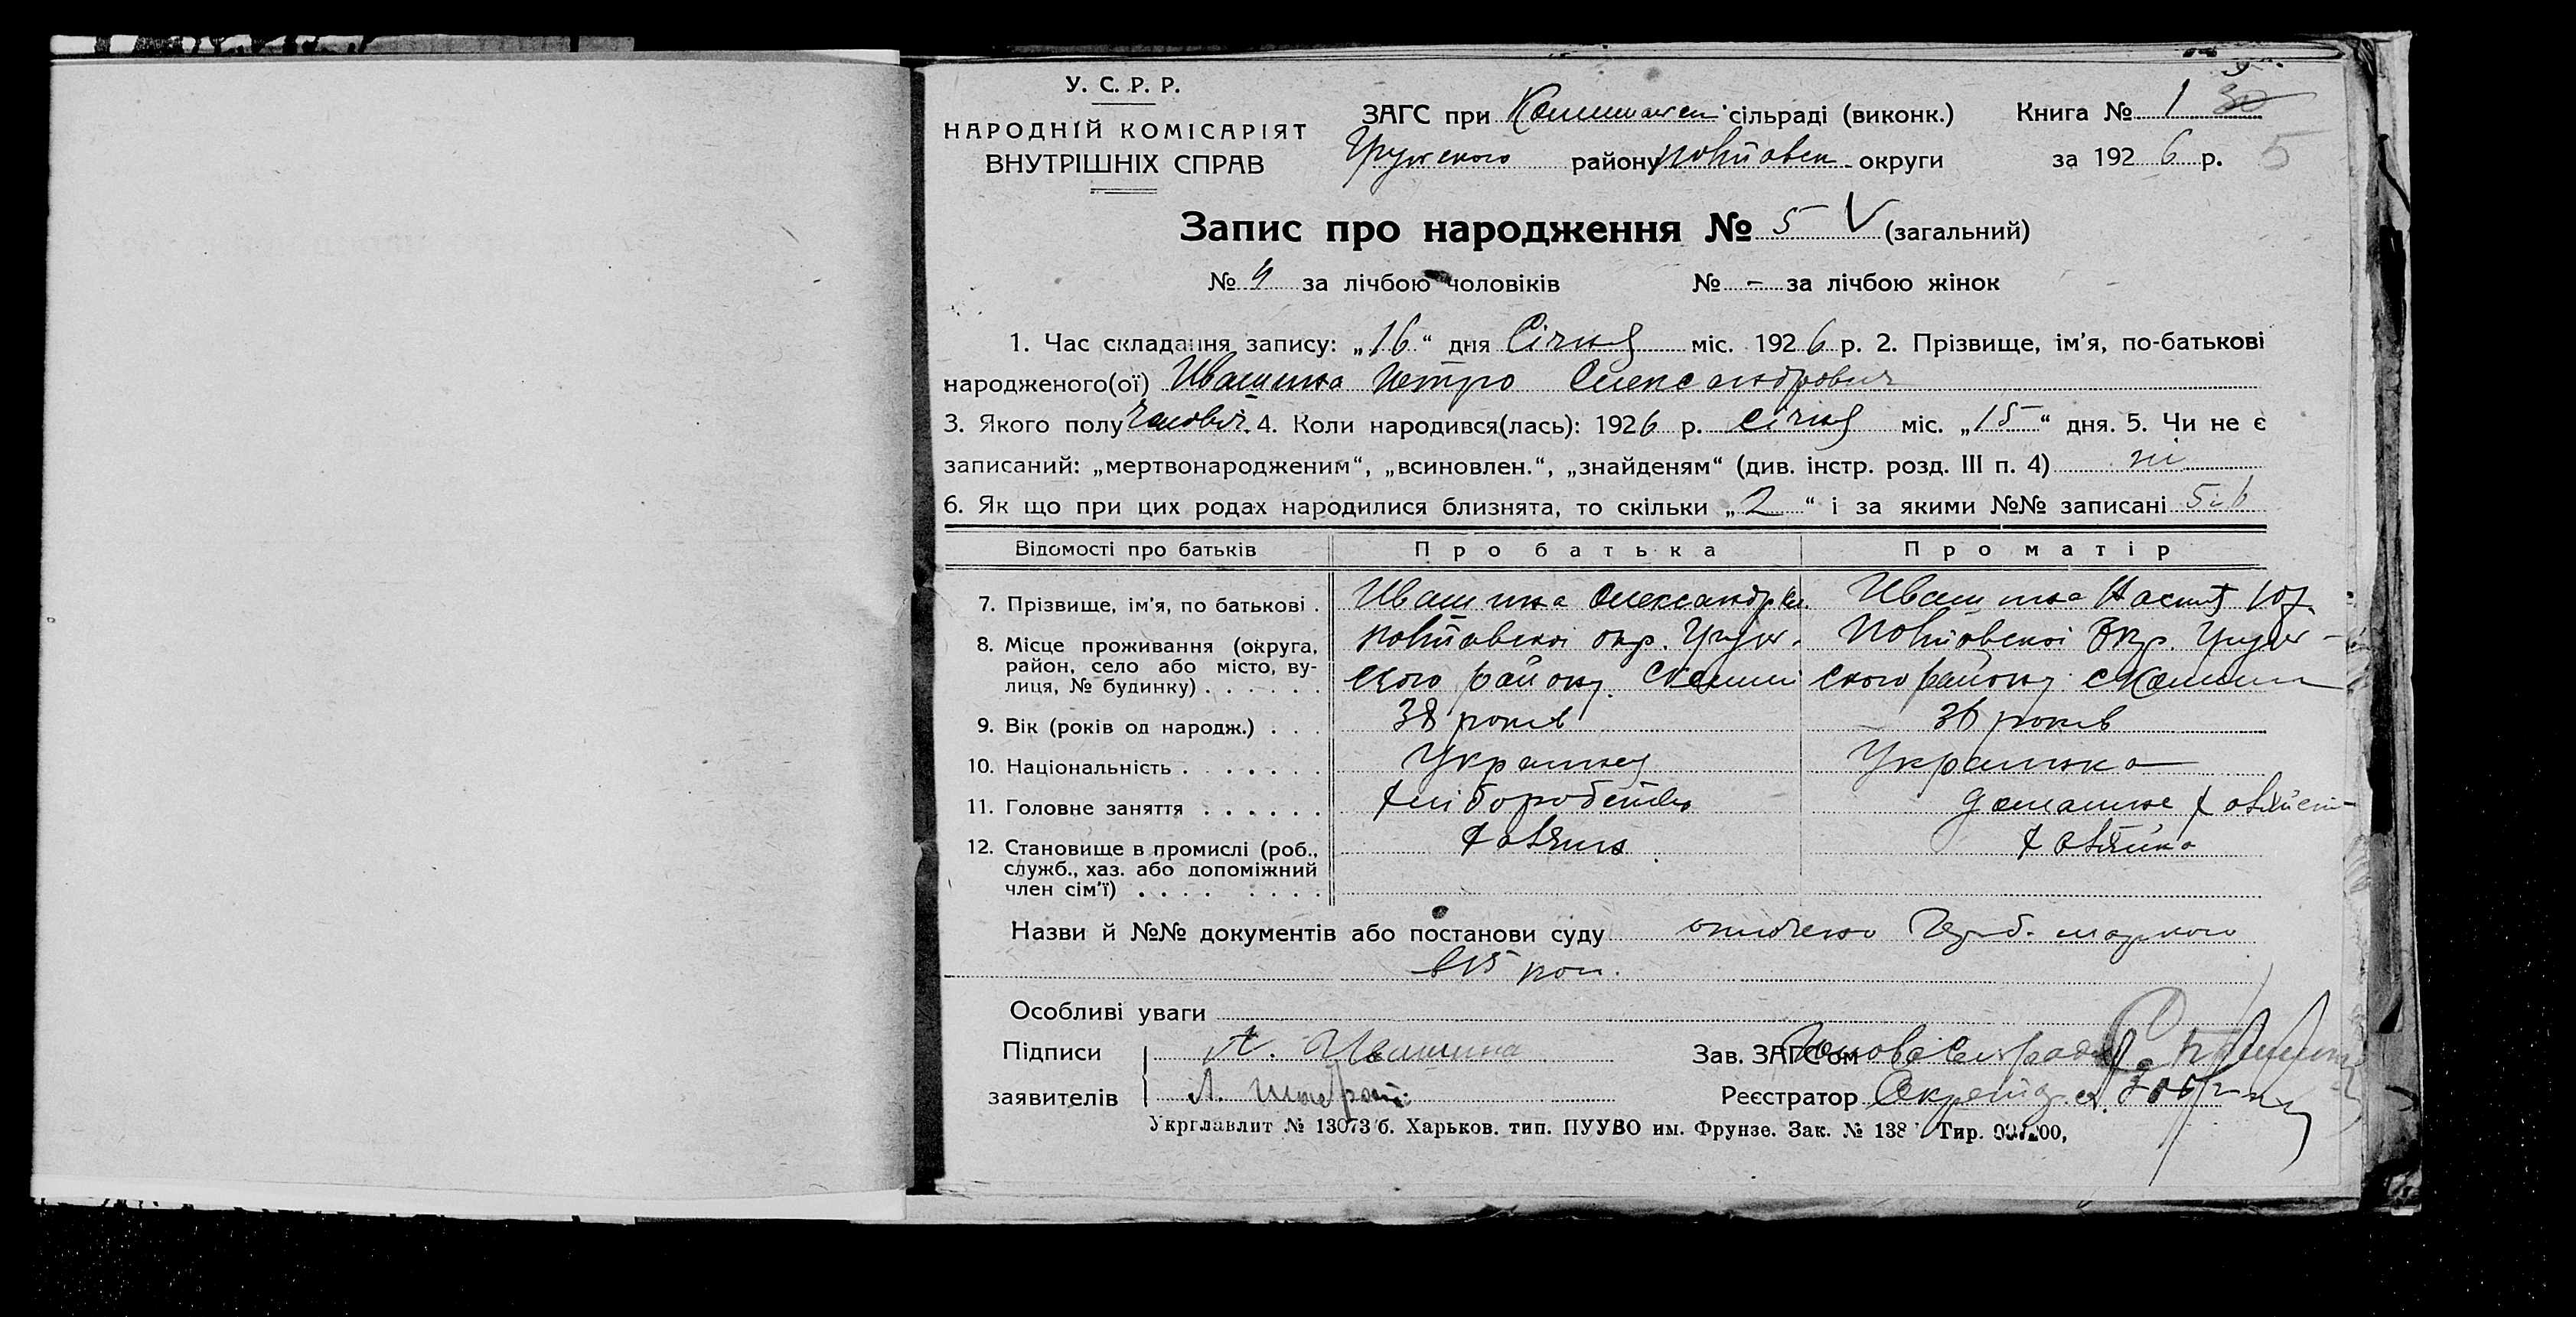 У. С. Р. Р.
НАРОДНІЙ КОМІСАРІЯТ
ВНУТРІШНІХ СПРАВ
ЗАГС при сільраді (виконк.)
району округи
Книга № 1
за 1926 р. 5
Запис про народження № 5 V (загальний)
№ 4 за лічбою чоловіків № - за лічбою жінок
1. Час складання запису: „16“ дня Січня міс. 1926 р. 2. Прізвище, ім'я, по-батькові
народженого(ої) Ивашина Петро Олександрович
3. Якого полу Чоловіч. 4. Коли народився(лась): 1926 р. Січня міс. „15“ дня. 5. Чи не є
записаний: „мертвонародженим“, „всиновлен.“, „знайденям“ (див. інстр. розд. III п. 4) ні
6. Як що при цих родах народилися близнята, то скільки „2“ і за якими №№ записані 5 і 6
Відомості про батьків Про батька Про матір
7. Прізвище, ім'я, по батькові . Ивашина Олександр Ивашина
8. Місце проживання (округа, Полтавської окр. Полтавської Окр.
район, село або місто, ву- ского району ского району
лиця, № будинку) . . . . . .
9. Вік (років од народж.) . . . 38 років 36 років
10. Національність . . . . . . . Українец Українка
11. Головне заняття . . . . . . хліборобство домашнє
12. Становище в промислі (роб., хазяїн хазяйка
служб., хаз. або допоміжний
член сім'ї) . . . . . . . .
Назви й №№ документів або постанови суду оплочено
в 15 коп.
Особливі уваги
Підписи А. Ивашина Зав. ЗАГС'ом Голова сільради
заявителів Л. Реєстратор Секретар
Укрглавлит № 13073/б. Харьков. тип. ПУУВО им. Фрунзе. Зак. № 138 Тир.